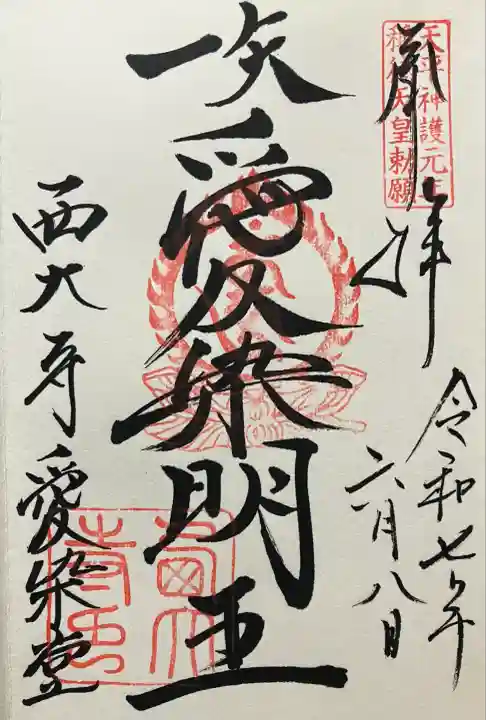 天平神護元年
称徳天皇勅願
拝
令和七年
六月八日
一矢愛染明王
西大寺愛染堂